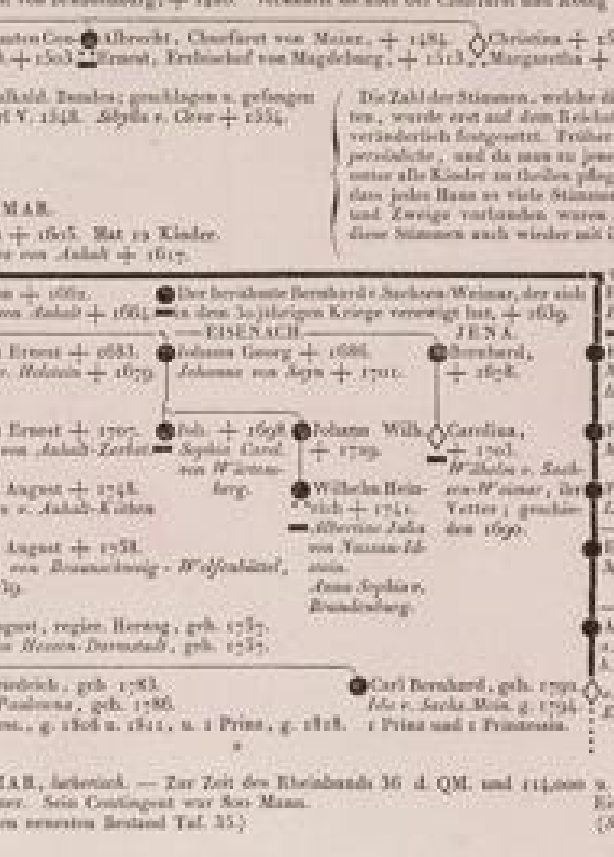 Albrecht, Churfürst von Mainz, + 1484.
Christina +
+ 1503. Ernest, Erzbischof von Magdeburg, + 1513.
Margaretha +
Bundes; geschlagen u. gefangen
V. 1548. Sibylla v. Cleve + 1554.
Die Zahl der Stimmen, welche
ten, wurde erst auf dem Reichs
veränderlich festgesetzt. Früher
persönliche, und da man zu jene
unter alle Kinder zu theilen pfleg
dass jedes Haus so viele Stimm
und Zweige vorhanden waren
diese Stimmen auch wieder mit
MAR.
+ 1605. Hat 12 Kinder.
von Anhalt + 1617.
+ 1662.
von Anhalt + 1664.
Der berühmte Bernhard v. Sachsen-Weimar, der sich
in dem 30jährigen Kriege verewigt hat, + 1639.
EISENACH
JENA.
Ernest + 1683.
v. Holstein + 1679.
Johann Georg + 1686.
Johanna von Sayn + 1701.
Bernhard,
+ 1678.
Ernest + 1707.
von Anhalt-Zerbst
Joh. + 1698
Sophia Carol.
von Würtem-
berg.
Johann Wilh.
+ 1729.
Carolina,
+ 1703.
Wilhelm v. Sach-
sen-Weimar, ihr
Vetter; geschie-
den 1690.
August + 1748.
v. Anhalt-Köthen
Wilhelm Hein-
rich + 1741.
Albertine Julia
von Nassau-Id-
stein.
Anna Sophia v.
Brandenburg.
August + 1758.
von Braunschweig-Wolfenbüttel,
August, regier. Herzog, geb. 1757.
Hessen-Darmstadt, geb. 1757.
Friedrich, geb. 1783.
Paulowna, geb. 1786.
g. 1808 u. 1811, u. 1 Prinz, g. 1818.
Carl Bernhard, geb. 1792.
Ida v. Sachs. Mein. g. 1794.
1 Prinz und 1 Prinzessin.
MAR, lutherisch. — Zur Zeit des Rheinbunds 36 d. QM. und 114,000
Sein Contingent war 800 Mann.
neuesten Bestand Taf. 35.)